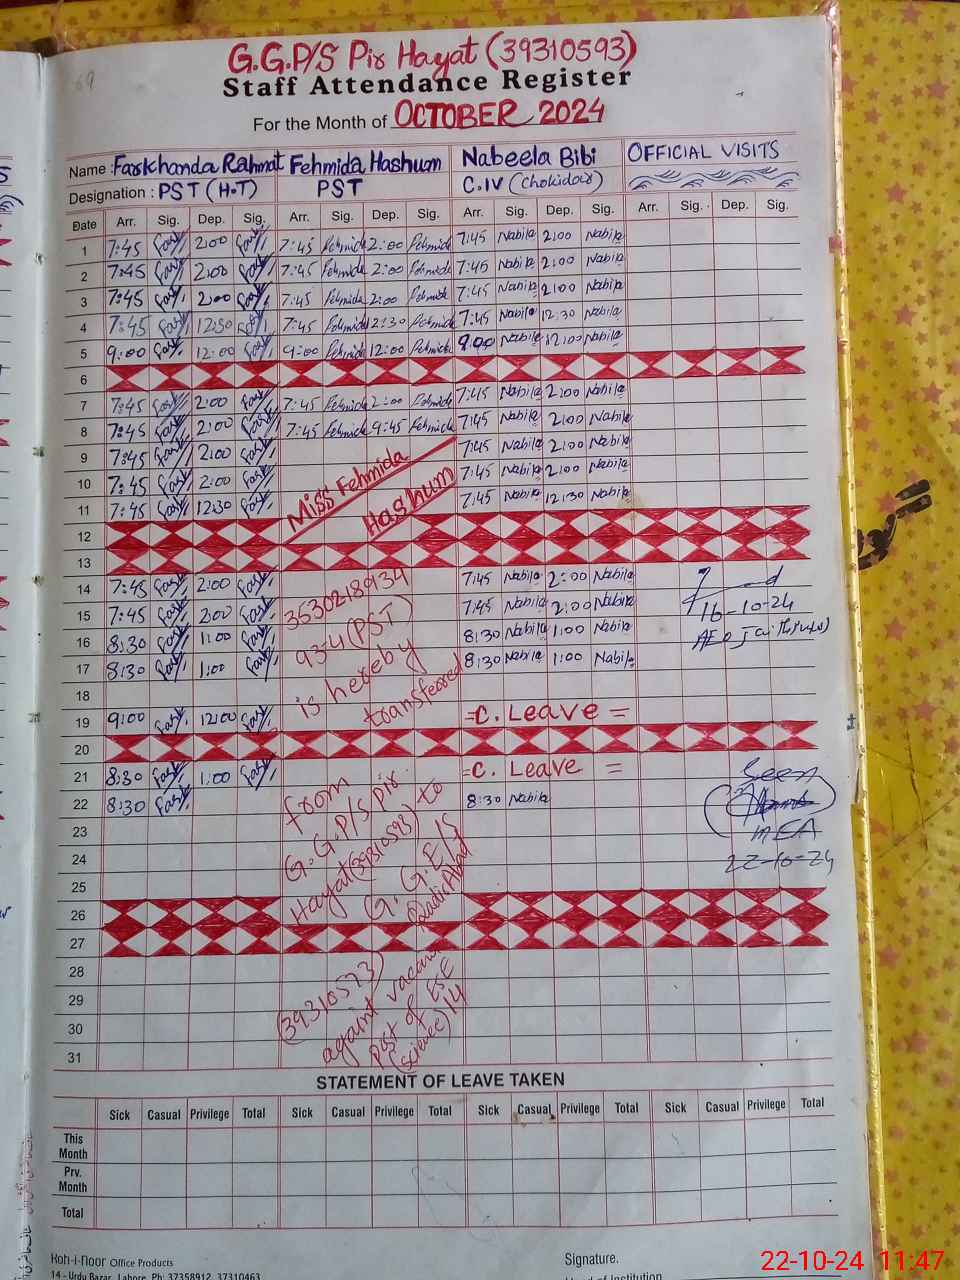 69
G.G.P/S Pir Hayat (39310593)
Staff Attendance Register
For the Month of OCTOBER 2024
Name : Farkhanda Rahmat Fehmida Hashum Nabeela Bibi OFFICIAL VISITS
Designation : PST (H.T) PST C.IV (Chokidar)
Date Arr. Sig. Dep. Sig. Arr. Sig. Dep. Sig. Arr. Sig. Dep. Sig. Arr. Sig. Dep. Sig.
1 7:45 Fark 2:00 Fark 7:45 Fehmida 2:00 Fehmida 7:45 Nabila 2:00 Nabila
2 7:45 Fark 2:00 Fark 7:45 Fehmida 2:00 Fehmida 7:45 Nabila 2:00 Nabila
3 7:45 Fark 2:00 Fark 7:45 Fehmida 2:00 Fehmida 7:45 Nabila 2:00 Nabila
4 7:45 Fark 12:30 Fark 7:45 Fehmida 12:30 Fehmida 7:45 Nabila 12:30 Nabila
5 9:00 Fark 12:00 Fark 9:00 Fehmida 12:00 Fehmida 9:00 Nabila 12:00 Nabila
6
7 7:45 Fark 2:00 Fark 7:45 Fehmida 2:00 Fehmida 7:45 Nabila 2:00 Nabila
8 7:45 Fark 2:00 Fark 7:45 Fehmida 9:45 Fehmida 7:45 Nabila 2:00 Nabila
9 7:45 Fark 2:00 Fark 7:45 Nabila 2:00 Nabila
10 7:45 Fark 2:00 Fark 7:45 Nabila 2:00 Nabila
11 7:45 Fark 12:30 Fark 7:45 Nabila 12:30 Nabila
Miss Fehmida
Hashum
12
13
14 7:45 Fark 2:00 Fark 7:45 Nabila 2:00 Nabila
15 7:45 Fark 2:00 Fark 7:45 Nabila 2:00 Nabila
16-10-24
16 8:30 Fark 1:00 Fark 8:30 Nabila 1:00 Nabila
AEO
17 8:30 Fark 1:00 Fark 8:30 Nabila 1:00 Nabila
3530218934
93-4 (PST)
is hereby
transferred
18
19 9:00 Fark 12:00 Fark =C. Leave =
20
21 8:30 Fark 1:00 Fark =C. Leave =
22 8:30 Fark 8:30 Nabila
Seen
MEA
22-10-24
from
G.G.P/S Pir
Hayat (39310593) to
G.E/S
23
24
25
26
27
28
29
30
31
(39310573)
againt vacant
Post of ESE
(science) 14
STATEMENT OF LEAVE TAKEN
Sick Casual Privilege Total Sick Casual Privilege Total Sick Casual Privilege Total Sick Casual Privilege Total
This Month
Prv. Month
Total
Koh-i-noor Office Products
14 - Urdu Bazar, Lahore. Ph: 37358912, 37310463
Signature.
Head of Institution
22-10-24 11:47